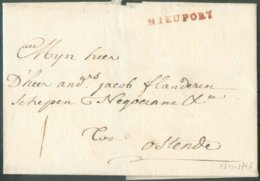 NIEUPORT
Mijn heer
D'heer and.rs jacob flanderin
schepen & Negociant &a
Tot
ostende